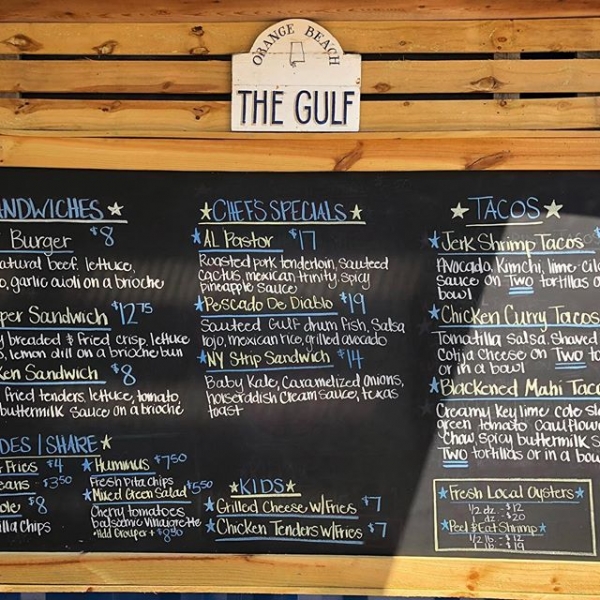 ORANGE BEACH
THE GULF
NDWICHES
Burger $8
atural beef, lettuce,
o, garlic aioli on a brioche
per Sandwich $12.75
y breaded & fried crisp, lettuce
s, lemon dill on a brioche bun
ken Sandwich $8
fried tenders, lettuce, tomato,
buttermilk sauce on a brioche
DES / SHARE
Fries $4
eans - $3.50
ole $8
illa Chips
Hummus $7.50
Fresh Pita Chips
Mixed Green Salad $5.50
Cherry tomatoes
balsamic vinaigrette
+Add Grouper +
CHEF'S SPECIALS
AL Pastor $17
Roasted pork tenderloin, sauteed
cactus mexican trinity, spicy
pineapple sauce
Pescado De Diablo $19
Sauteed Gulf drum fish, salsa
rojo, mexican rice, grilled avocado
NY Strip Sandwich $14
Baby Kale, Caramelized onions,
horseradish cream sauce, texas
toast
KIDS
Grilled Cheese w/Fries $7
Chicken Tenders w/Fries $7
TACOS
Jerk Shrimp Tacos
Avocado, Kimchi, lime-cil
sauce on Two tortillas o
bowl
Chicken Curry Tacos
Tomatilla salsa, shaved
Cotija cheese on Two to
or in a bowl
Blackened Mahi Taco
Creamy key lime cole sl
green tomato cauliflow
chow, spicy buttermilk s
Two tortillas or in a bow
Fresh Local Oysters
1/2 dz - $12
dz - $20
Peel & Eat Shrimp
1/2 lb - $12
1 lb - $19